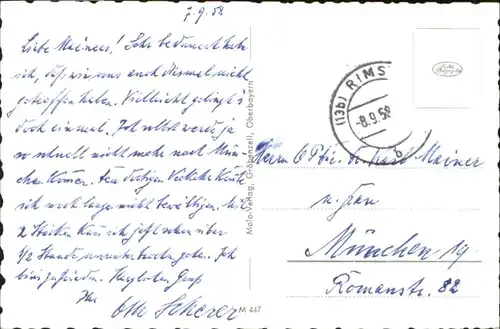 7.9.58
Liebe Mainers! Sehr bedauert habe
ich, daß wir uns auch diesmal nicht
getroffen haben. Vielleicht gelingt's
doch einmal. Ich selbst werde ja
so schnell nicht mehr nach Mün-
chen kommen. Den dortigen Verkehr könnte
ich noch lange nicht bewältigen. Mit
2 Stöcken kann ich jetzt schon über
1/2 Stunde gehen. Ich
bin zufrieden. Herzlichen Gruß
Ihr
Otto Scherer
Mola-Verlag, Gröbenzell, Oberbayern
M 447
(13b) RIMS
-8.9.58
b
Herrn Karl Mainer
u. Frau
München 19
Romanstr. 82